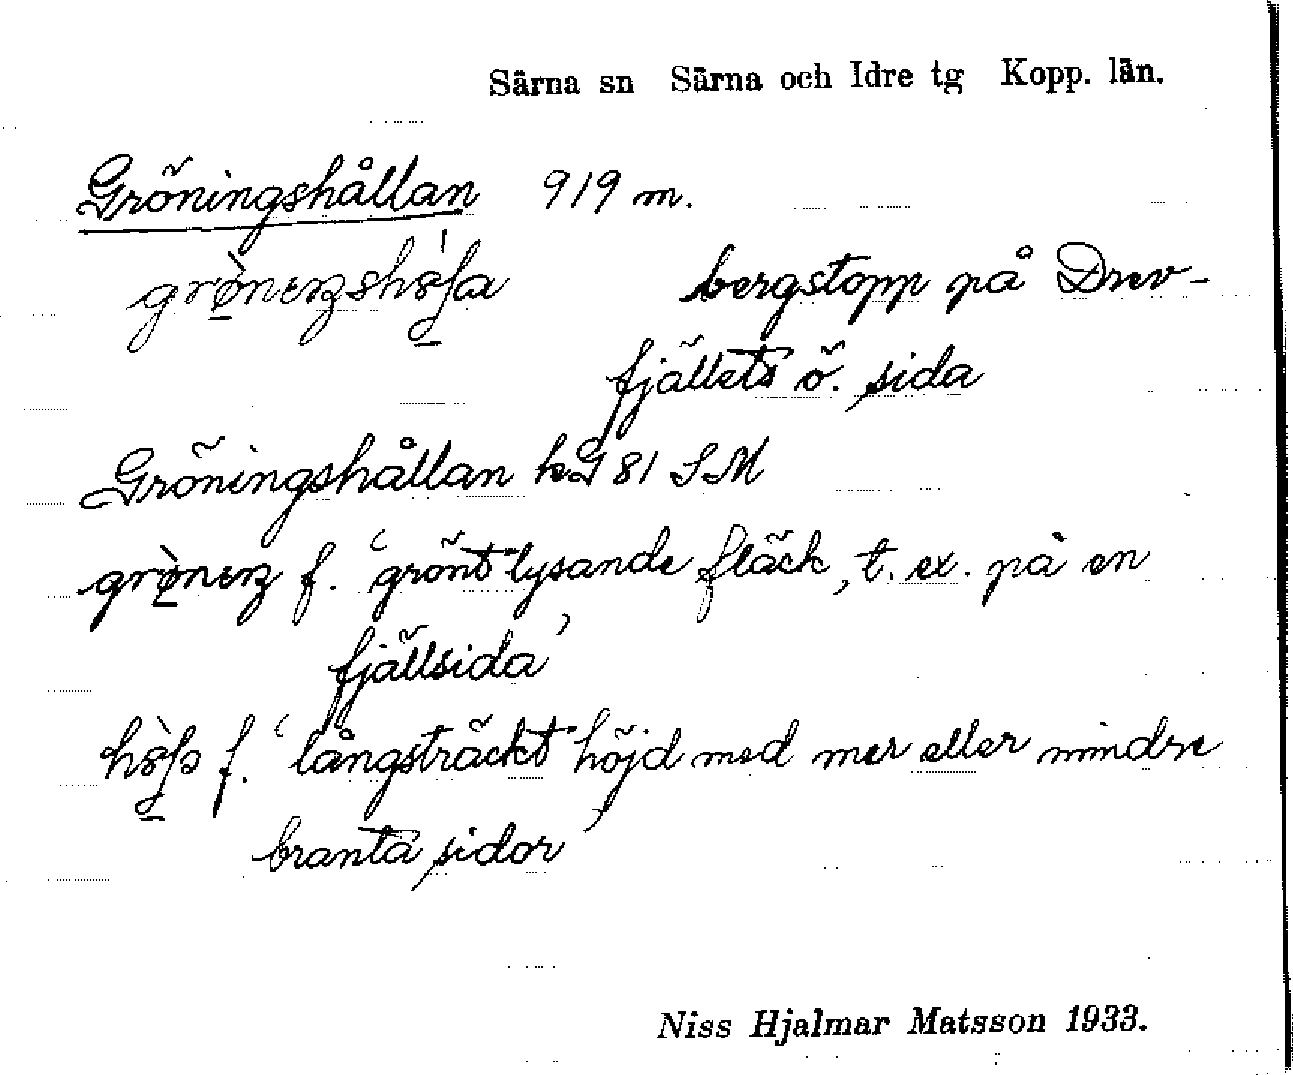 Särna sn Särna och Idre tg Kopp. län.
Gröningshållan 919 m.
bergstopp på Drev-
fjällets ö. sida
Gröningshållan kG 81 SM
f. ‘grönt lysande fläck, t. ex. på en
fjällsida’
f. ‘långsträckt höjd med mer eller mindre
branta sidor’
Niss Hjalmar Matsson 1933.